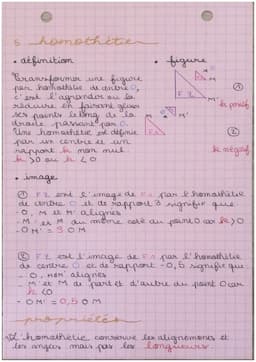 5 homothétie
• définition
• figure
Transformer une figure
par homothétie de centre O,
c'est l'agrandir ou la
réduire en faisant glisser
ses points le long de la
droite passant par O.
Une homothétie est définie
par un centre et un
rapport k non nul.
k > 0 ou k < 0
①
k positif
②
k négatif
• image
① F2 est l'image de F1 par l'homothétie
de centre O et de rapport 3 signifie que
- O, M et M' alignés
- M' et M du même côté du point O car k > 0
- OM' = 3 OM
② F2 est l'image de F1 par l'homothétie
de centre O et de rapport -0,5 signifie que
- O, M et M' alignés
- M' et M de part et d'autre du point O car
k < 0
- OM' = 0,5 OM
propriétés
L'homothétie conserve les alignements et
les angles mais pas les longueurs